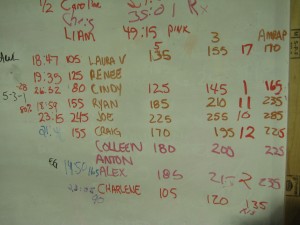 1/2 Caroline 35:01 Rx
Chris
LIAM 49:15 PINK
5 3 AMRAP
18:47 105 LAURA V 135 155 17 170
19:39 125 RENEE
26:52 80 CINDY 125 145 1 165
5-3-1
18:59 155 RYAN 185 210 11 235
23:15 245 JOE 225 255 10 285
155 CRAIG 170 195 12 225
COLLEEN 180 200 225
ANTON
ALEX 185 215 2 235
CHARLENE 105 120 135